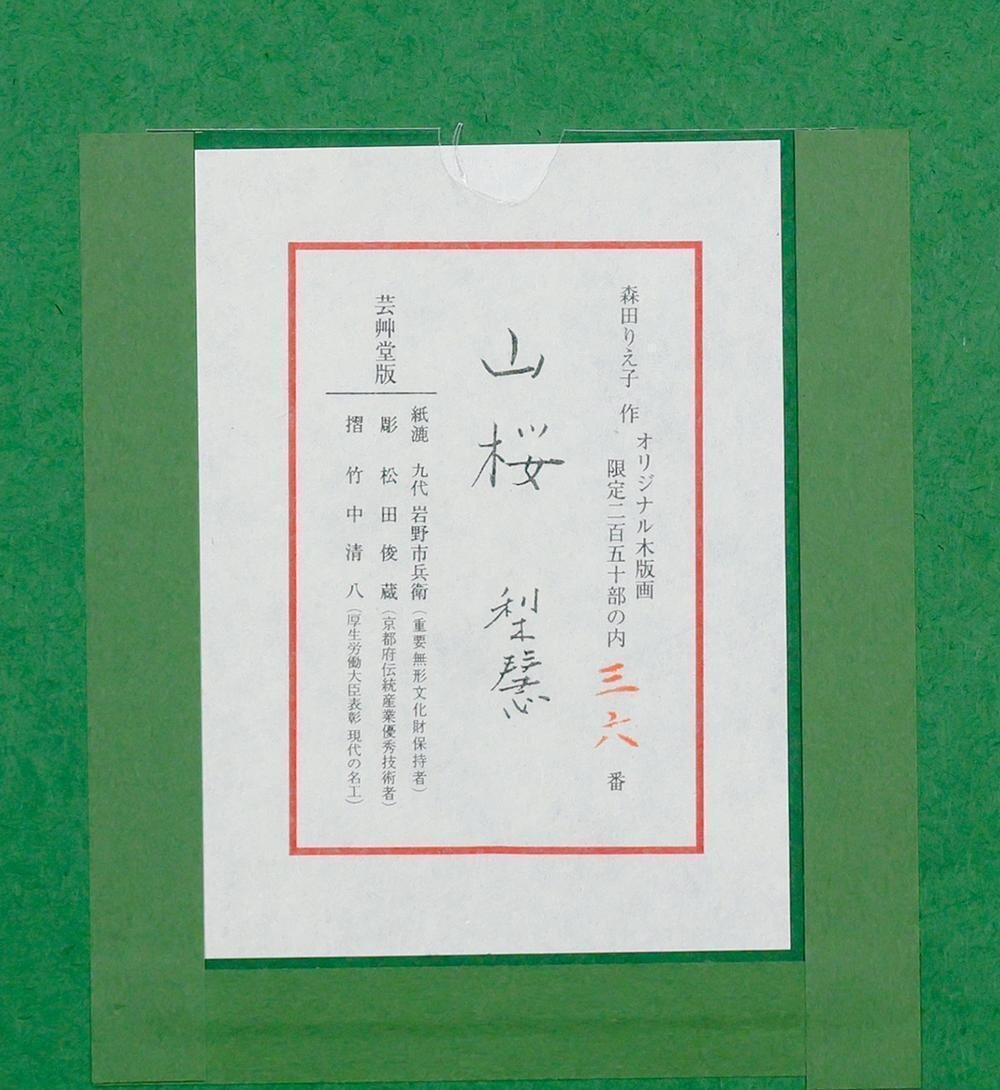 森田りえ子 作
オリジナル木版画
限定二百五十部の内 三六 番
山桜
梨慧
芸艸堂版
紙漉 九代 岩野市兵衛 (重要無形文化財保持者)
彫 松田俊蔵 (京都府伝統産業優秀技術者)
摺 竹中清八 (厚生労働大臣表彰 現代の名工)